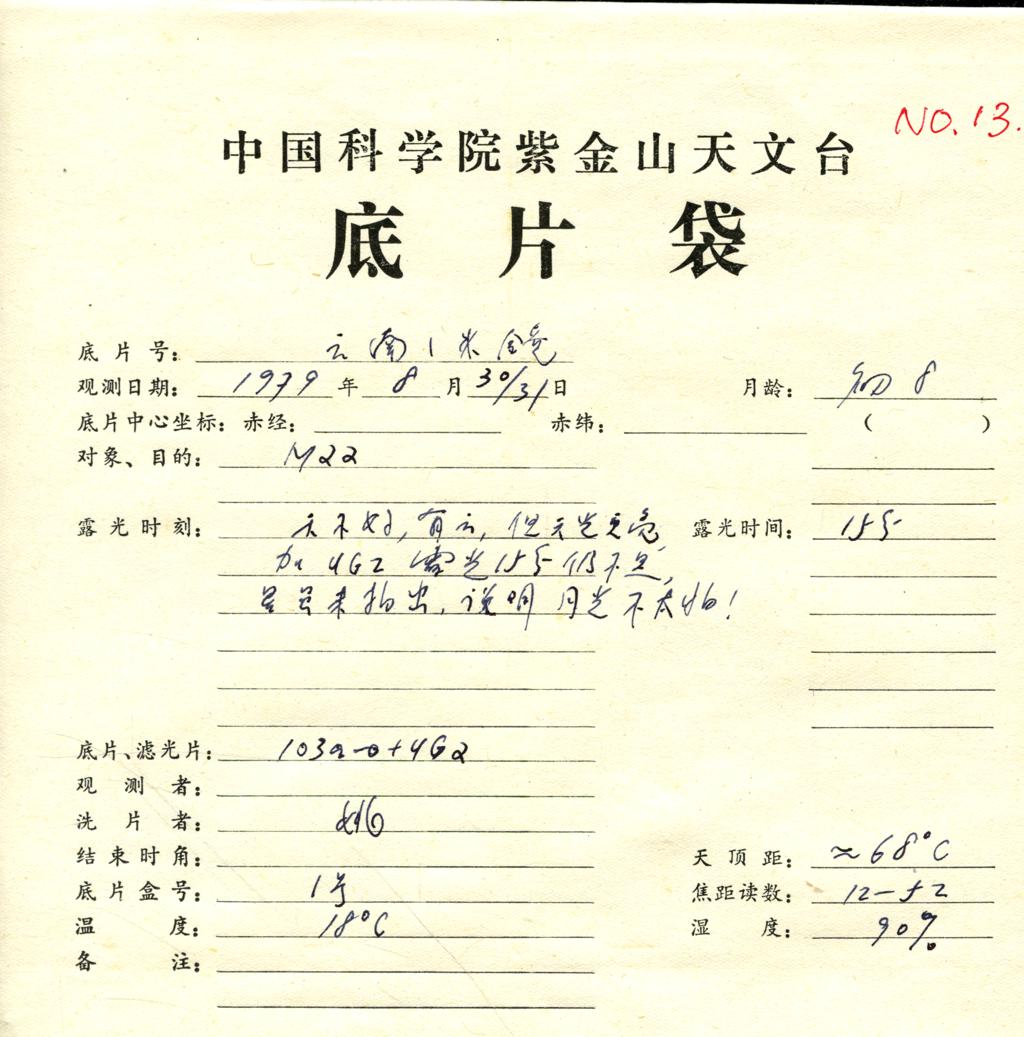 NO.13.
中国科学院紫金山天文台
底片袋
底片号: 云南1米镜
观测日期: 1979年8月30/31日 月龄: 初8
底片中心坐标: 赤经: 赤纬: ( )
对象、目的: M22
露光时刻: 天不好,有云,但天光更亮 露光时间: 15分
加UG2露光15分仍不足,
星虽未拍出,说明月光不太怕!
底片、滤光片: 103a-o+UG2
观测者:
洗片者:
结束时角: 天顶距: ≈68°C
底片盒号: 1号 焦距读数: 12-52
温度: 18°C 湿度: 90%
备注: